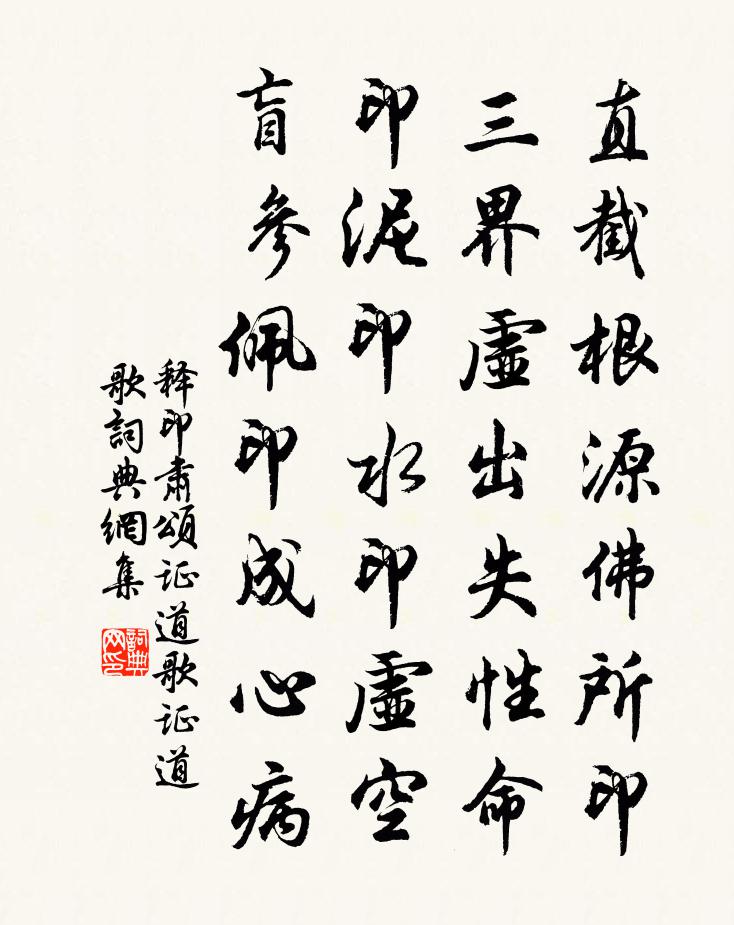 直截根源佛所印
三界虛出失性命
印泥印水印虛空
盲參佩印成心病
释印肃颂证道歌证道
歌詞典網集
詞典网印